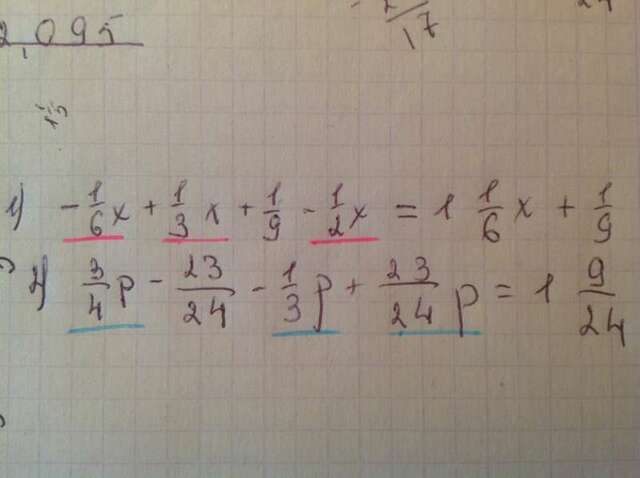 2,095
17
24
1) -1/6 x + 1/3 x + 1/9 - 1/2 x = 1 1/6 x + 1/9
2) 3/4 p - 23/24 - 1/3 p + 23/24 p = 1 9/24